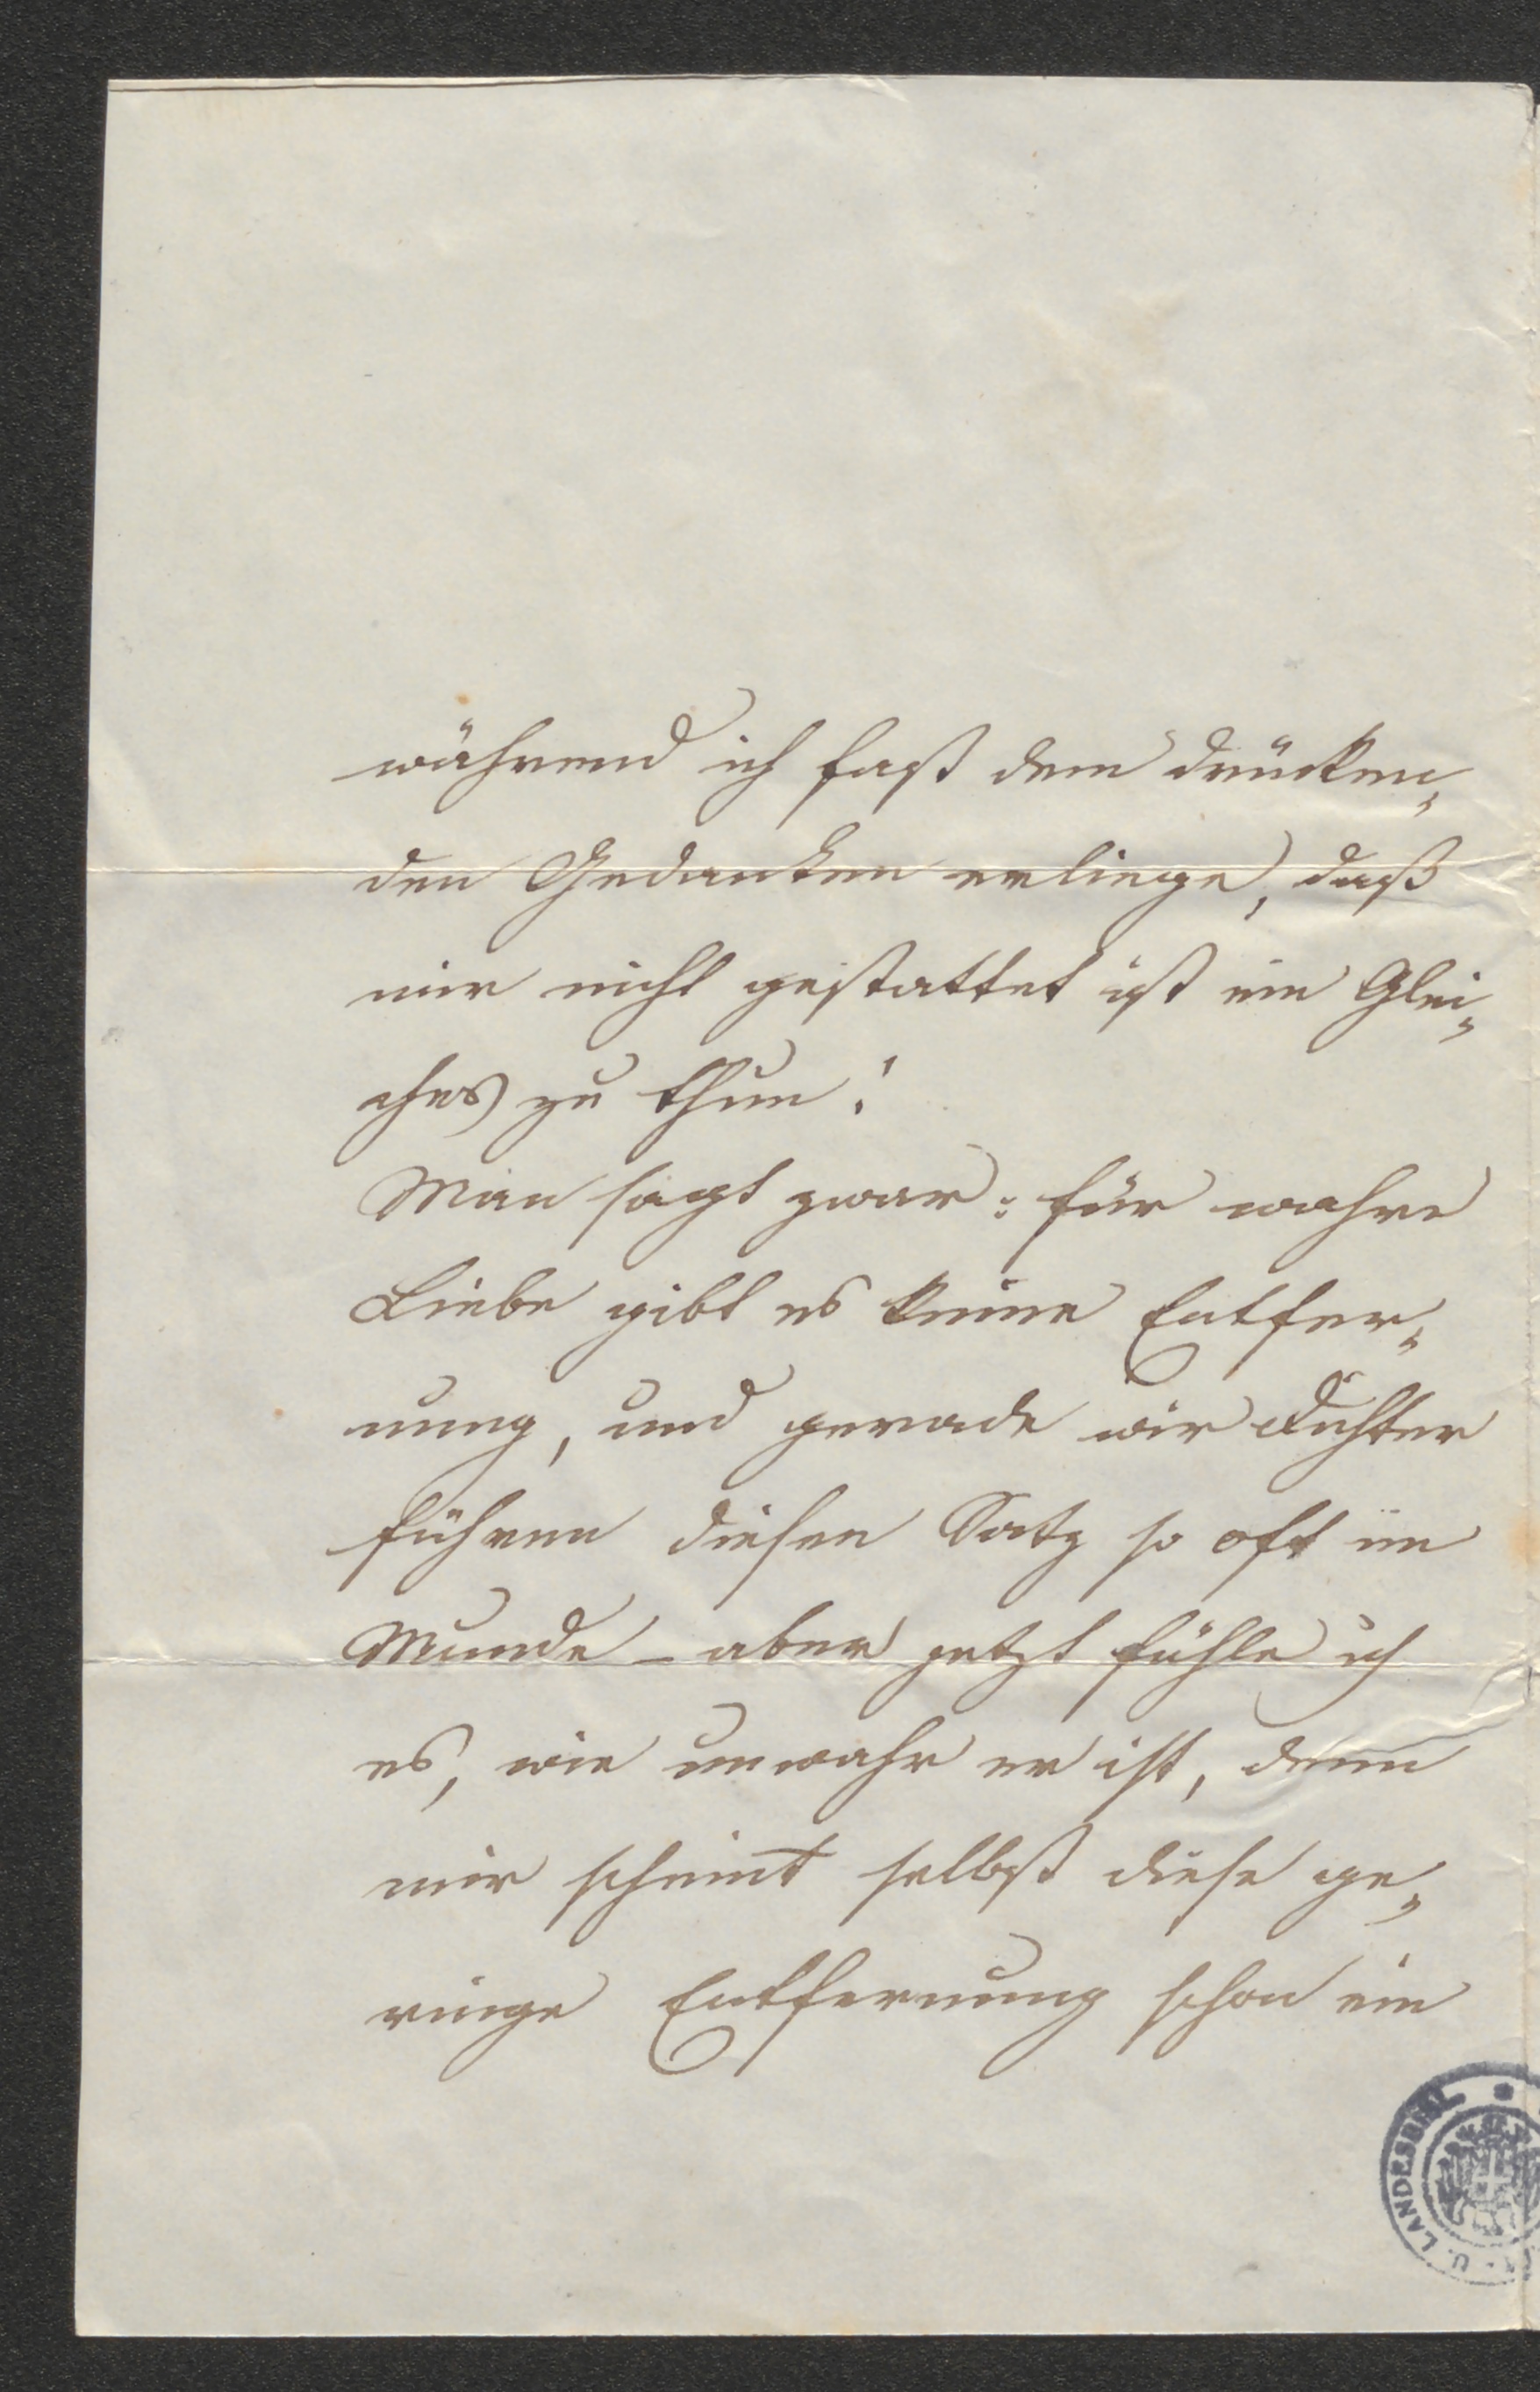 während ich fast dem drücken-
den Gedanken erliege, daß
mir nicht gestattet ist ein Glei-
ches zu thun!
Man sagt zwar: für wahre
Liebe gibt es keine Entfer-
nung, und gerade wir Dichter
führen diesen Satz so oft im
Munde – aber jetzt fühle ich
es, wie unwahr er ist, denn
mir scheint selbst diese ge-
ringe Entfernung schon ein
U. LANDESBIBL